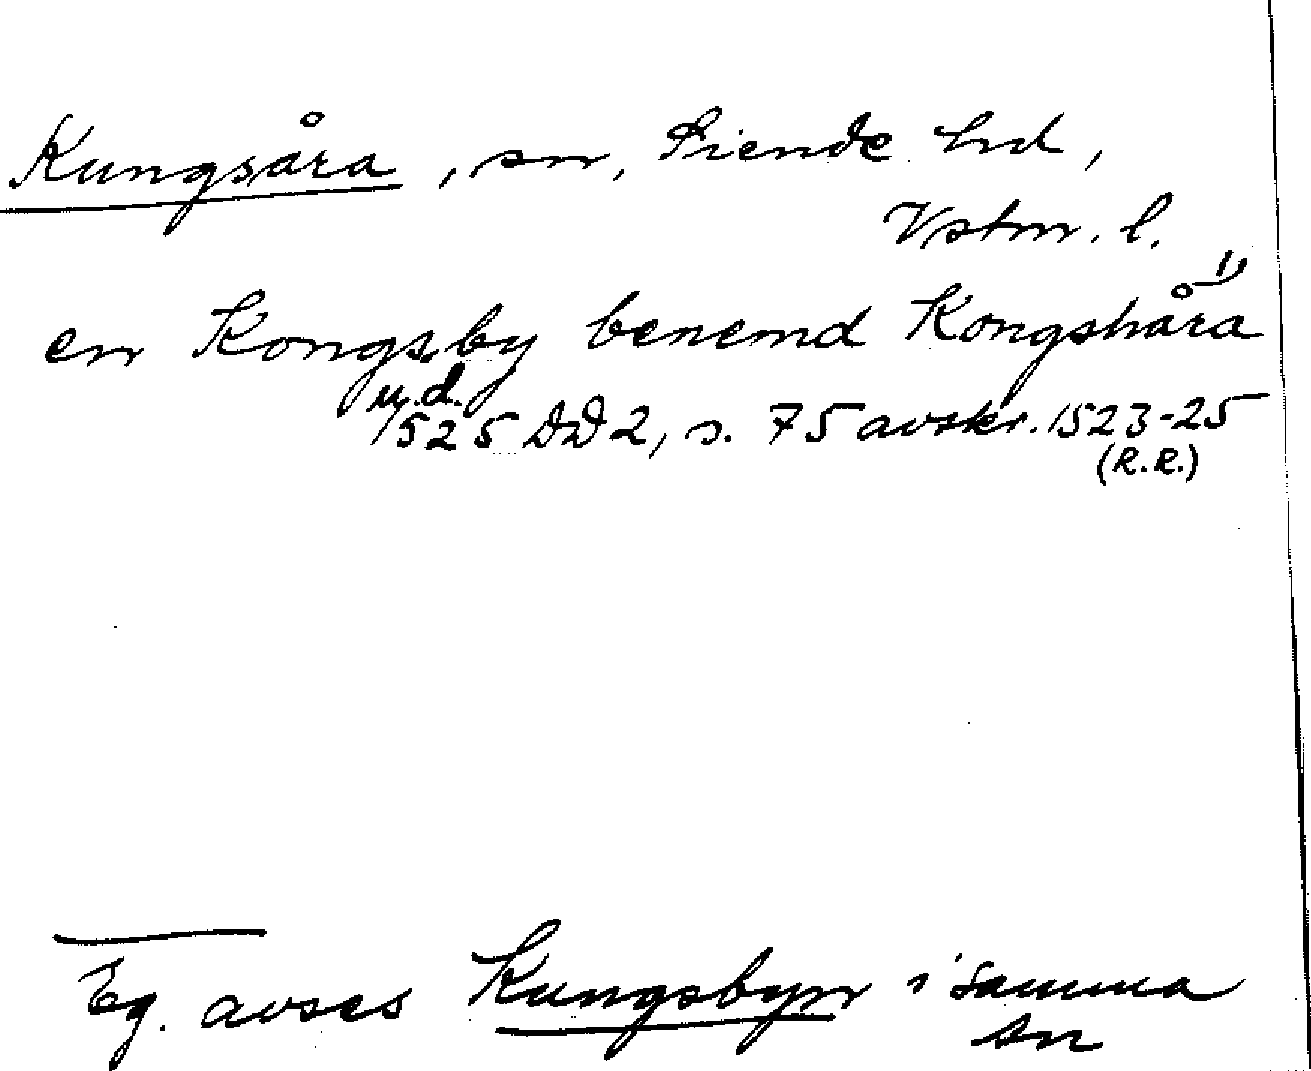 Kungsåra, sn, Siende hd,
Vstm. l.
en Kongsby benemd Kongshåra 1)
u.d.
1525 DD 2, s. 75 avskr. 1523-25
(R.R.)
Eg. avses Kungsbyn i samma
sn